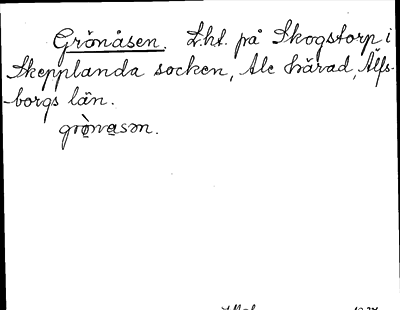 Grönåsen. Lht. på Skogstorp i
Skepplanda socken, Ale härad, Älfs-
borgs län.
grò̤nasən.